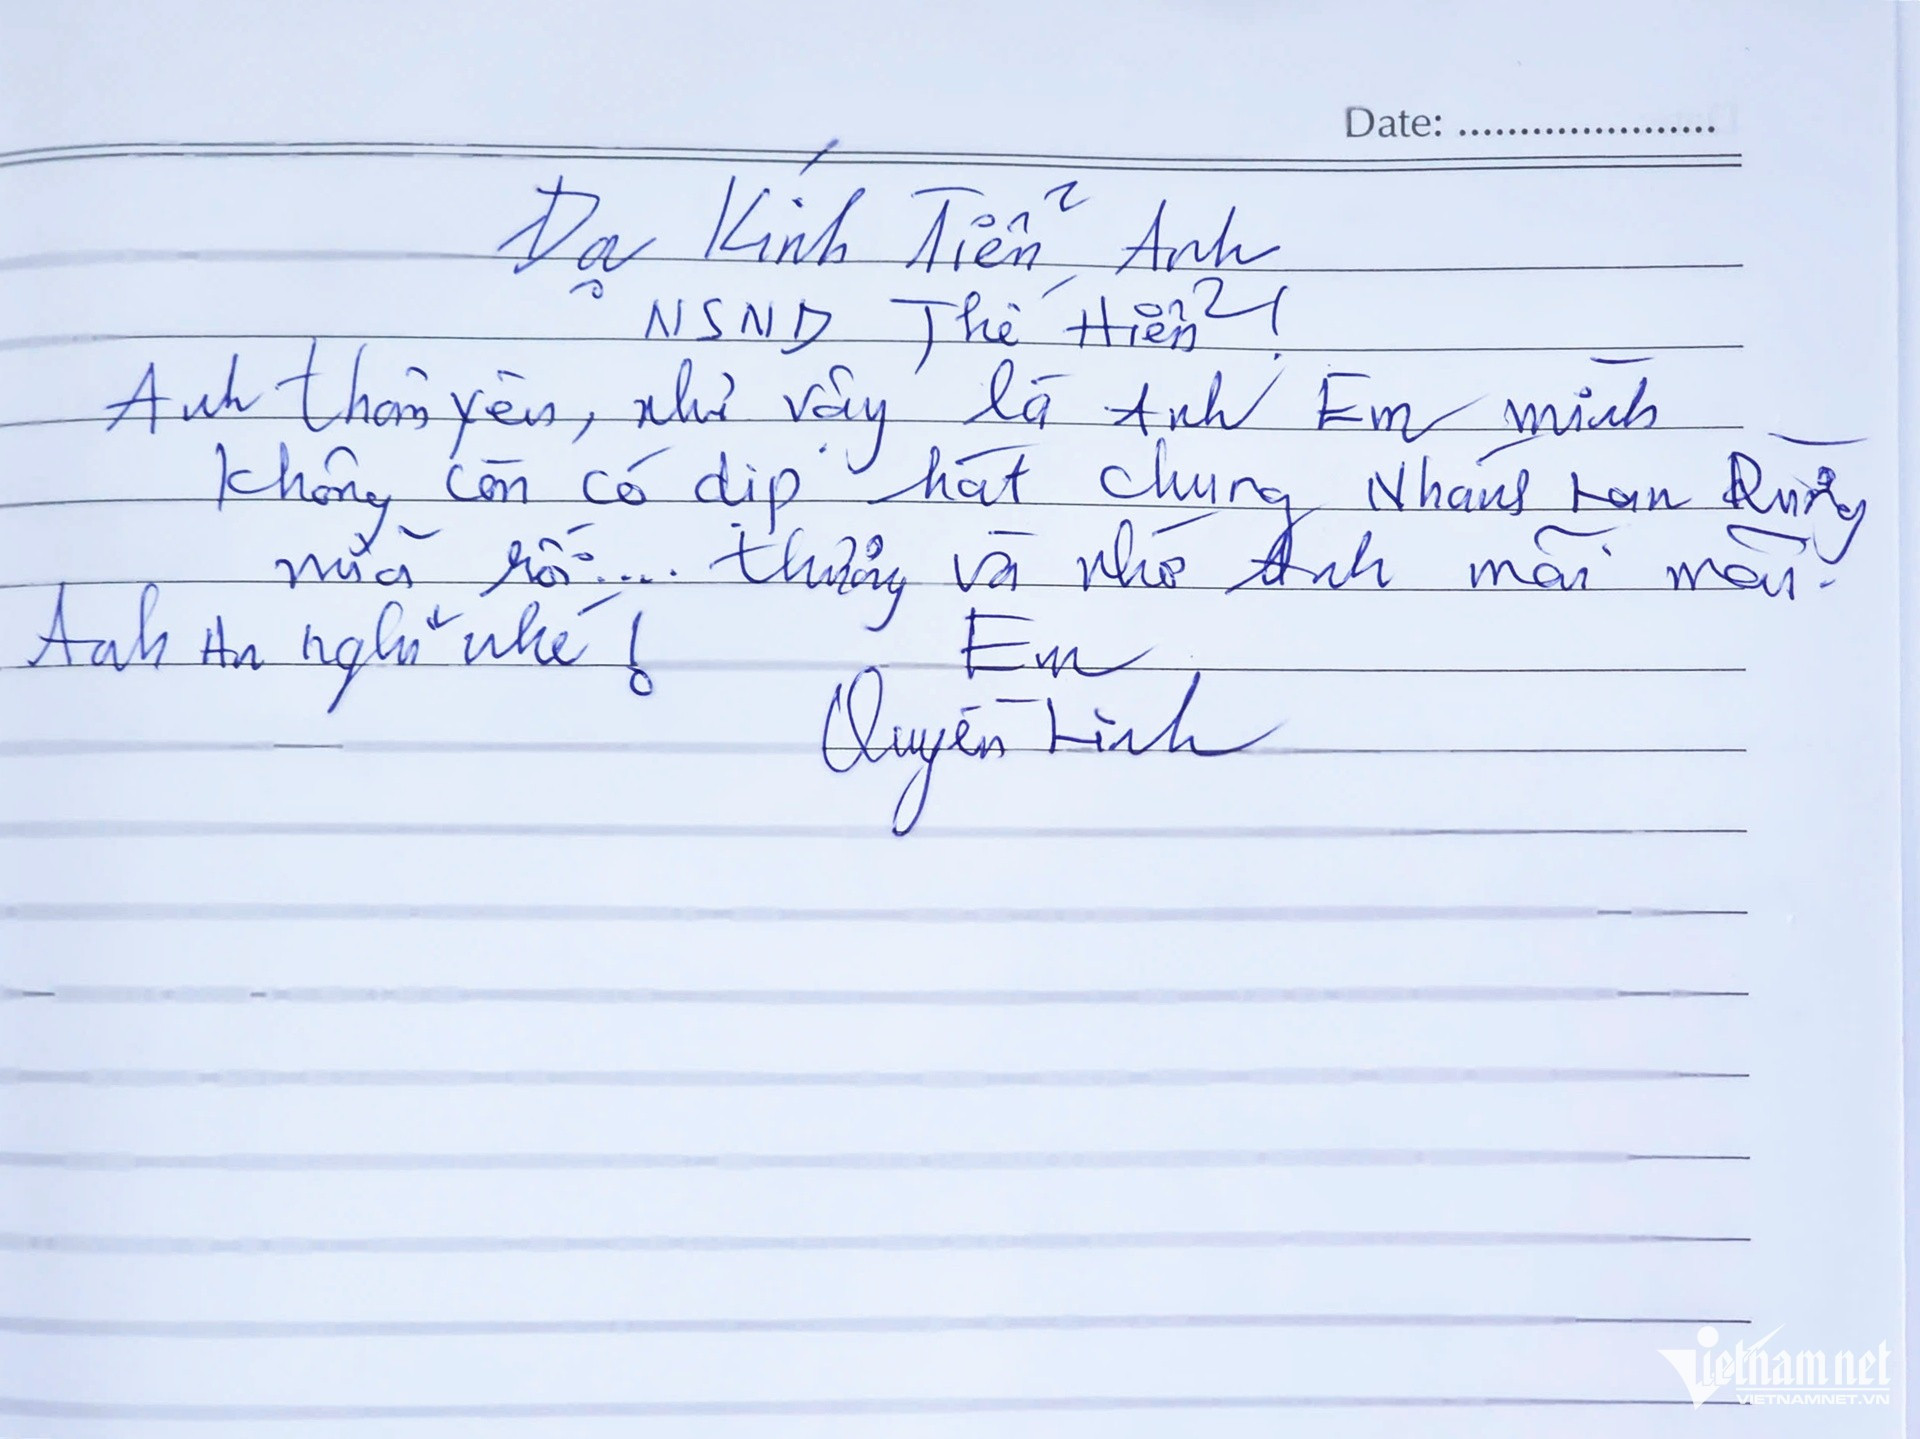 Date: .....................
Dạ Kính Tiễn Anh
NSND Thế Hiển!
Anh thân yêu, như vậy là Anh Em mình
không còn có dịp hát chung Nhánh Lan Rừng
nữa rồi.... thương và nhớ Anh mãi mãi.
Anh An nghỉ nhé! Em
Quyền Linh
Vietnamnet
VIETNAMNET.VN